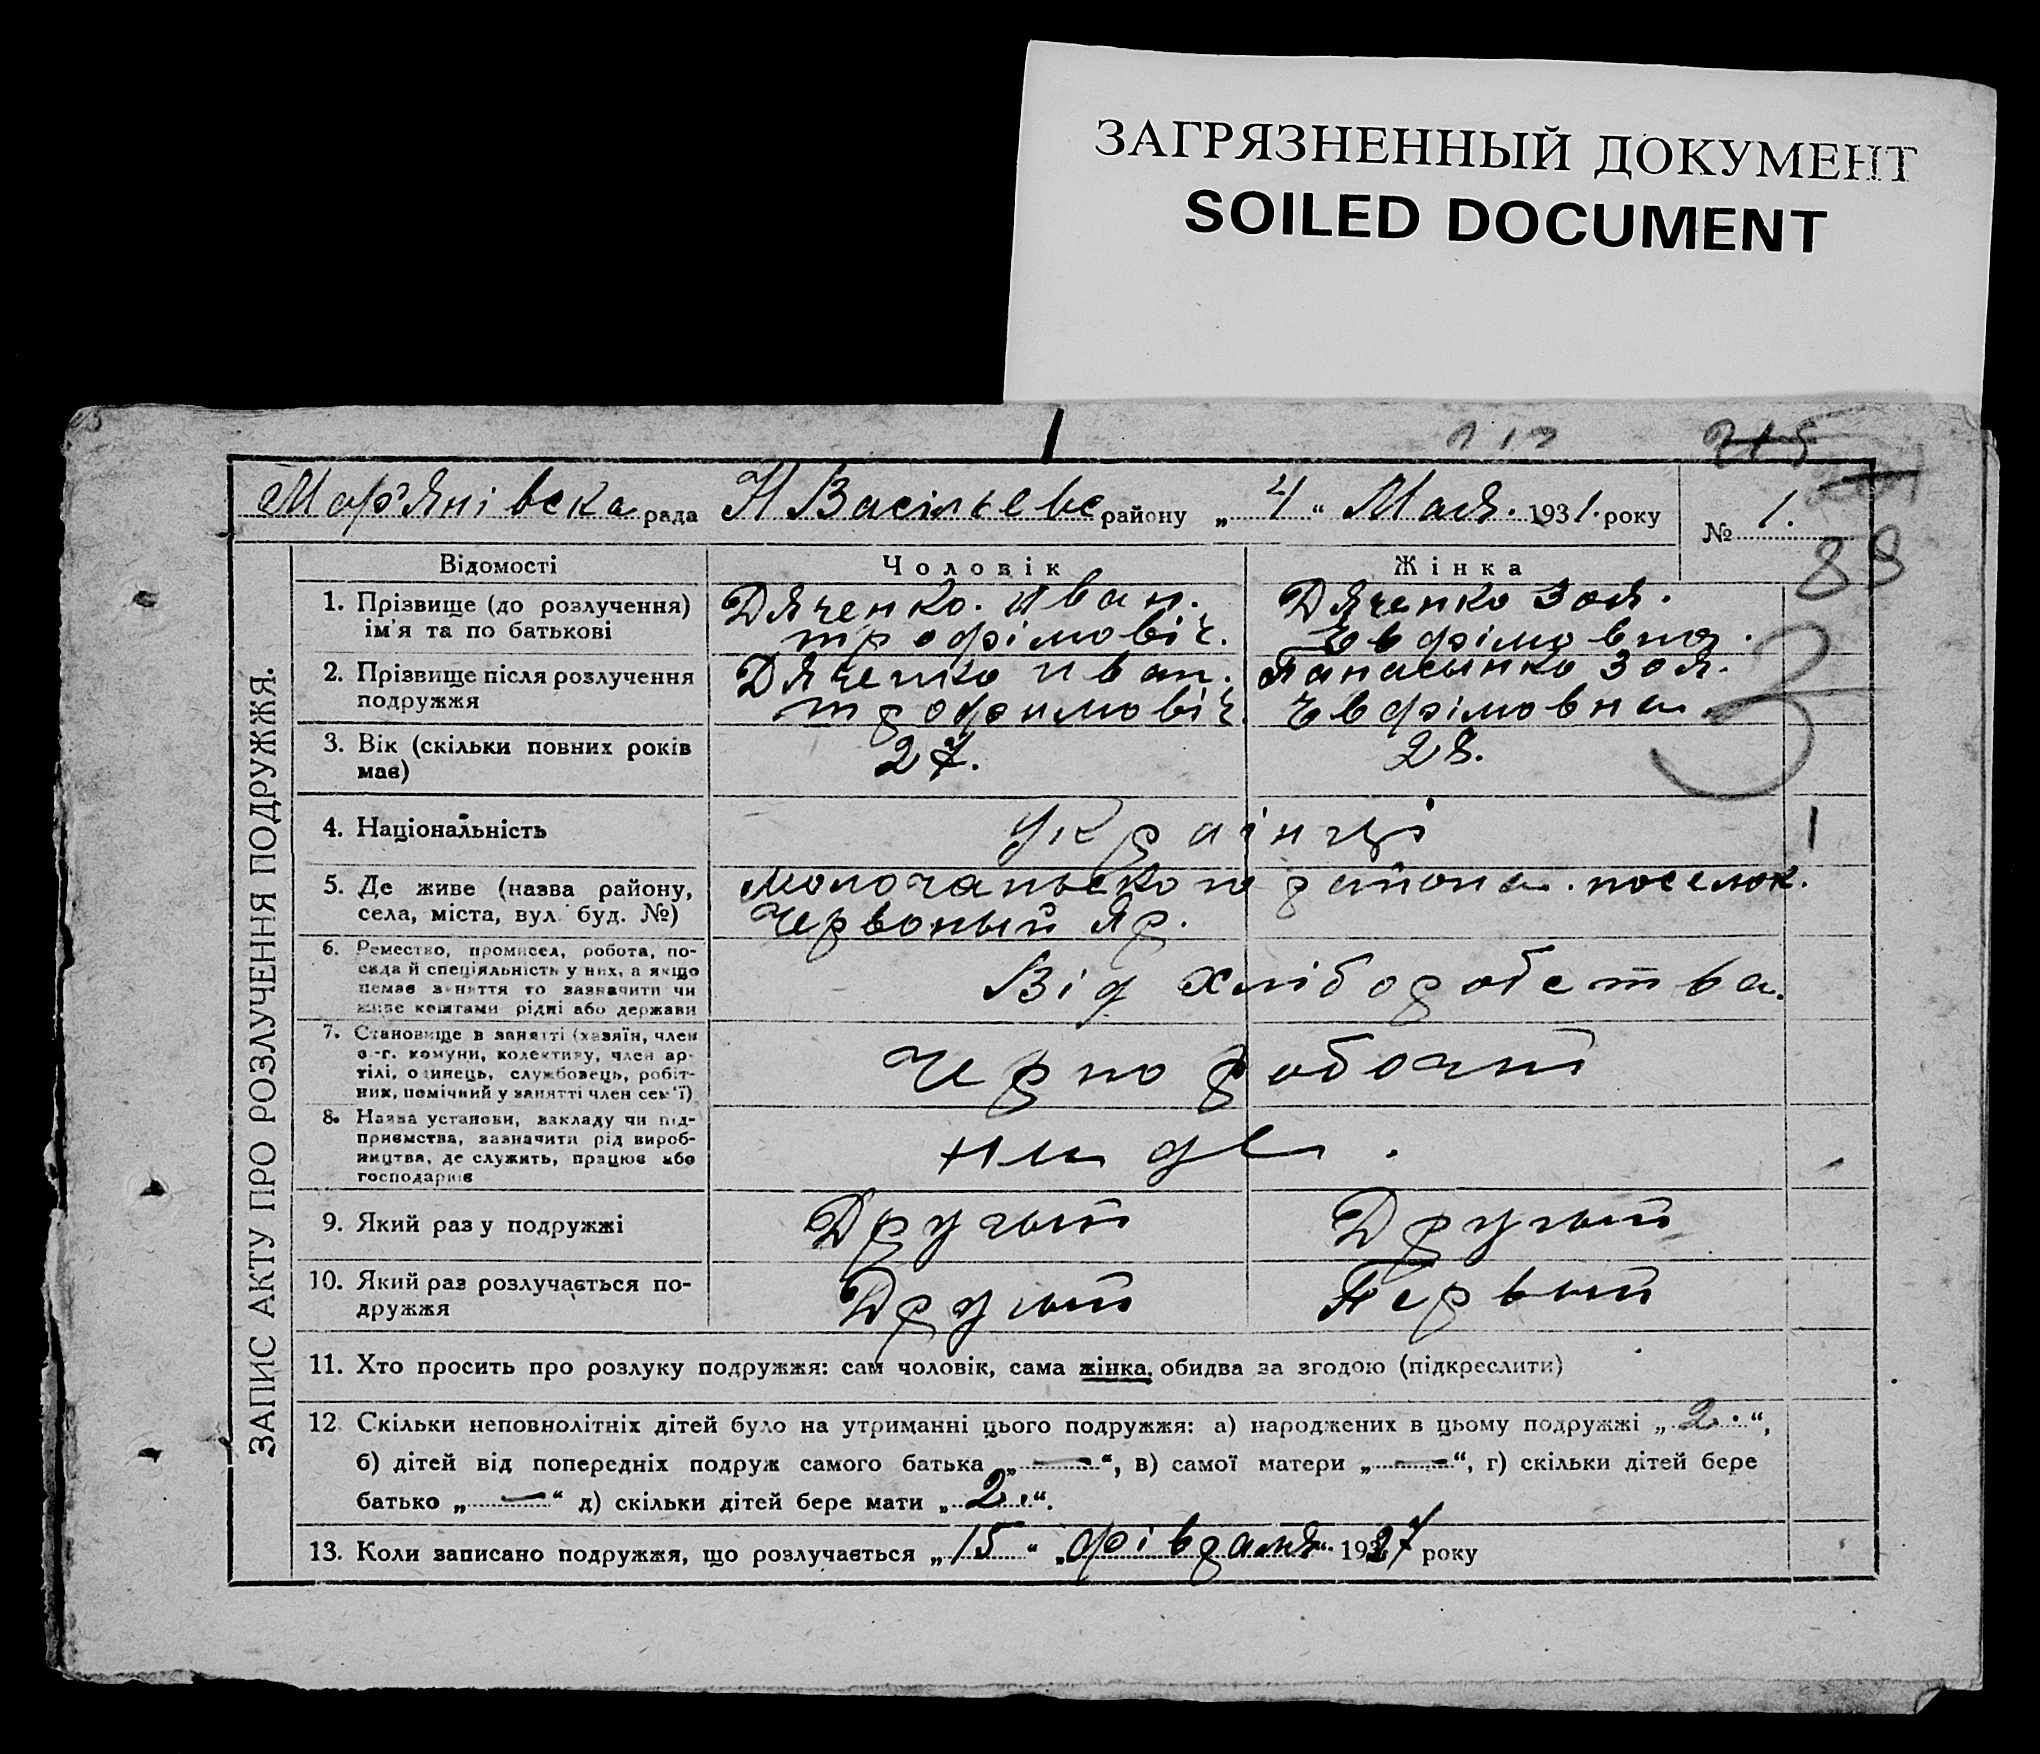 ЗАГРЯЗНЕННЫЙ ДОКУМЕНТ
SOILED DOCUMENT
215
Мар'янівска рада Н Васільевс району „ 4 “ Мая. 1931. року
№ 1.
88
Відомості Чоловік Жінка
1. Прізвище (до розлучення) ім'я та по батькові
Дяченко. Иван.
трофімовіч.
Дяченко Зоя.
Евфімовна.
2. Прізвище після розлучення подружжя
Дяченко Иван.
трофимовіч.
Панасынко Зоя.
Евфімовна.
3
3. Вік (скільки повних років має)
27.
28.
4. Національність
Украінці
1
5. Де живе (назва району, села, міста, вул. буд. №)
Молочаньского района. поселок.
Червоный Яр.
6. Ремество, промисел, робота, посада й спеціяльність у них, а якщо немає заняття то зазначити чи живе коштами рідні або держави
Від хліборобства.
7. Становище в занятті (хазяїн, член с.-г. комуни, колективу, член артілі, одинець, службовець, робітник, помічний у занятті член сем'ї)
Чернорабочий
8. Назва установи, закладу чи підприємства, зазначити рід виробництва, де служить, працює або господарює
нигде.
9. Який раз у подружжі
Другый
Другый
10. Який раз розлучається подружжя
Другый
Первый
11. Хто просить про розлуку подружжя: сам чоловік, сама жінка, обидва за згодою (підкреслити)
12. Скільки неповнолітніх дітей було на утриманні цього подружжя: а) народжених в цьому подружжі „ 2. “,
б) дітей від попередніх подруж самого батька „ — “, в) самої матери „ — “, г) скільки дітей бере
батько „ — “ д) скільки дітей бере мати „ 2. “.
13. Коли записано подружжя, що розлучається „ 15 “ „ фівраля “ 1927 року
ЗАПИС АКТУ ПРО РОЗЛУЧЕННЯ ПОДРУЖЖЯ.